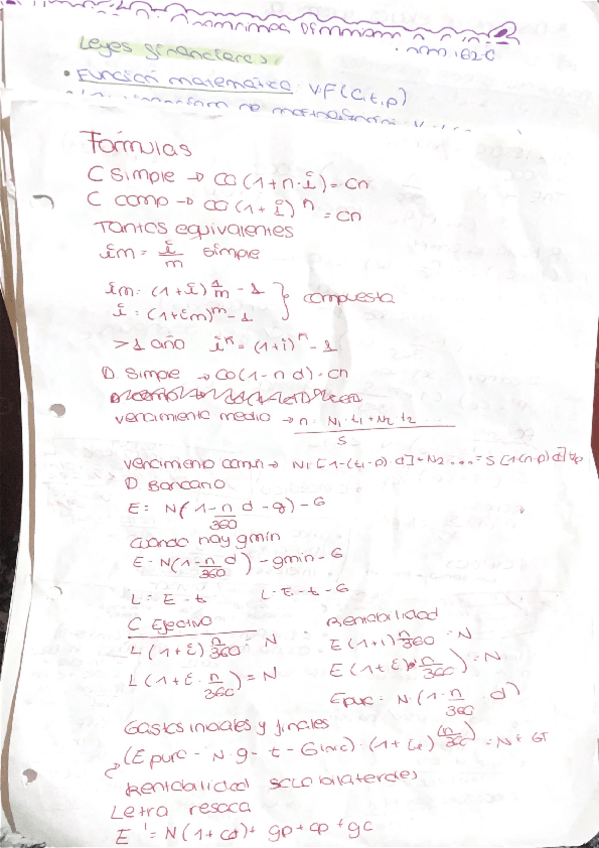 Leyes financieras:
• Función matemática: V.F(C,t,p)
Fórmulas
C Simple → C0(1+n·i)=Cn
C comp → C0(1+i)^n = Cn
Tantos equivalentes
im = i/m simple
im: (1+i)^1/m - 1 } compuesta
i: (1+im)^m - 1
>1 año i^n = (1+i)^n - 1
D Simple → C0(1-n d) = Cn
vencimiento medio → n = N1·t1+N2·t2 ... / S
vencimiento común → N1[1-(t1-p) d]+N2.... = S[1-(n-p)d]
D Bancario
E: N(1-n/360 d -g)-G
Cuando hay gmin
E = N(1-n/360 d)-gmin-G
L = E - t L = E - t - G
C Efectivo
L(1+i)^n/360 = N
L(1+i·n/360) = N
Rentabilidad
E(1+i)^n/360 = N
E(1+i·n/360) = N
Epuro = N·(1-n/360·d)
Gastos iniciales y finales
(Epuro - N·g - t - Ginic)·(1+ie)^(n/360) = N+GF
Rentabilidad solo bilaterales
Letra resaca
E' = N(1+cd)+gp+cp+gc